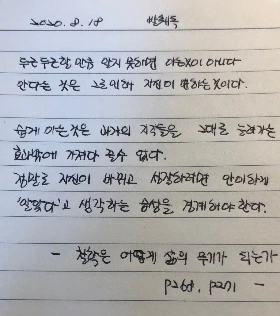 2020. 8. 18 발췌독
두근두근할 만큼 알지 못하면 아는것이 아니다
안다는 것은 그로인하 자신이 변하는것이다.
쉽게 아는것은 과거의 지각들을 그대로 늘려가는
효과밖에 가져다 줄수 없다.
정말로 자신이 바뀌고 성장하려면 안이하게
'알았다'고 생각하는 습성을 경계해야 한다.
- 철학은 어떻게 삶의 무기가 되는가
P268, P271 -